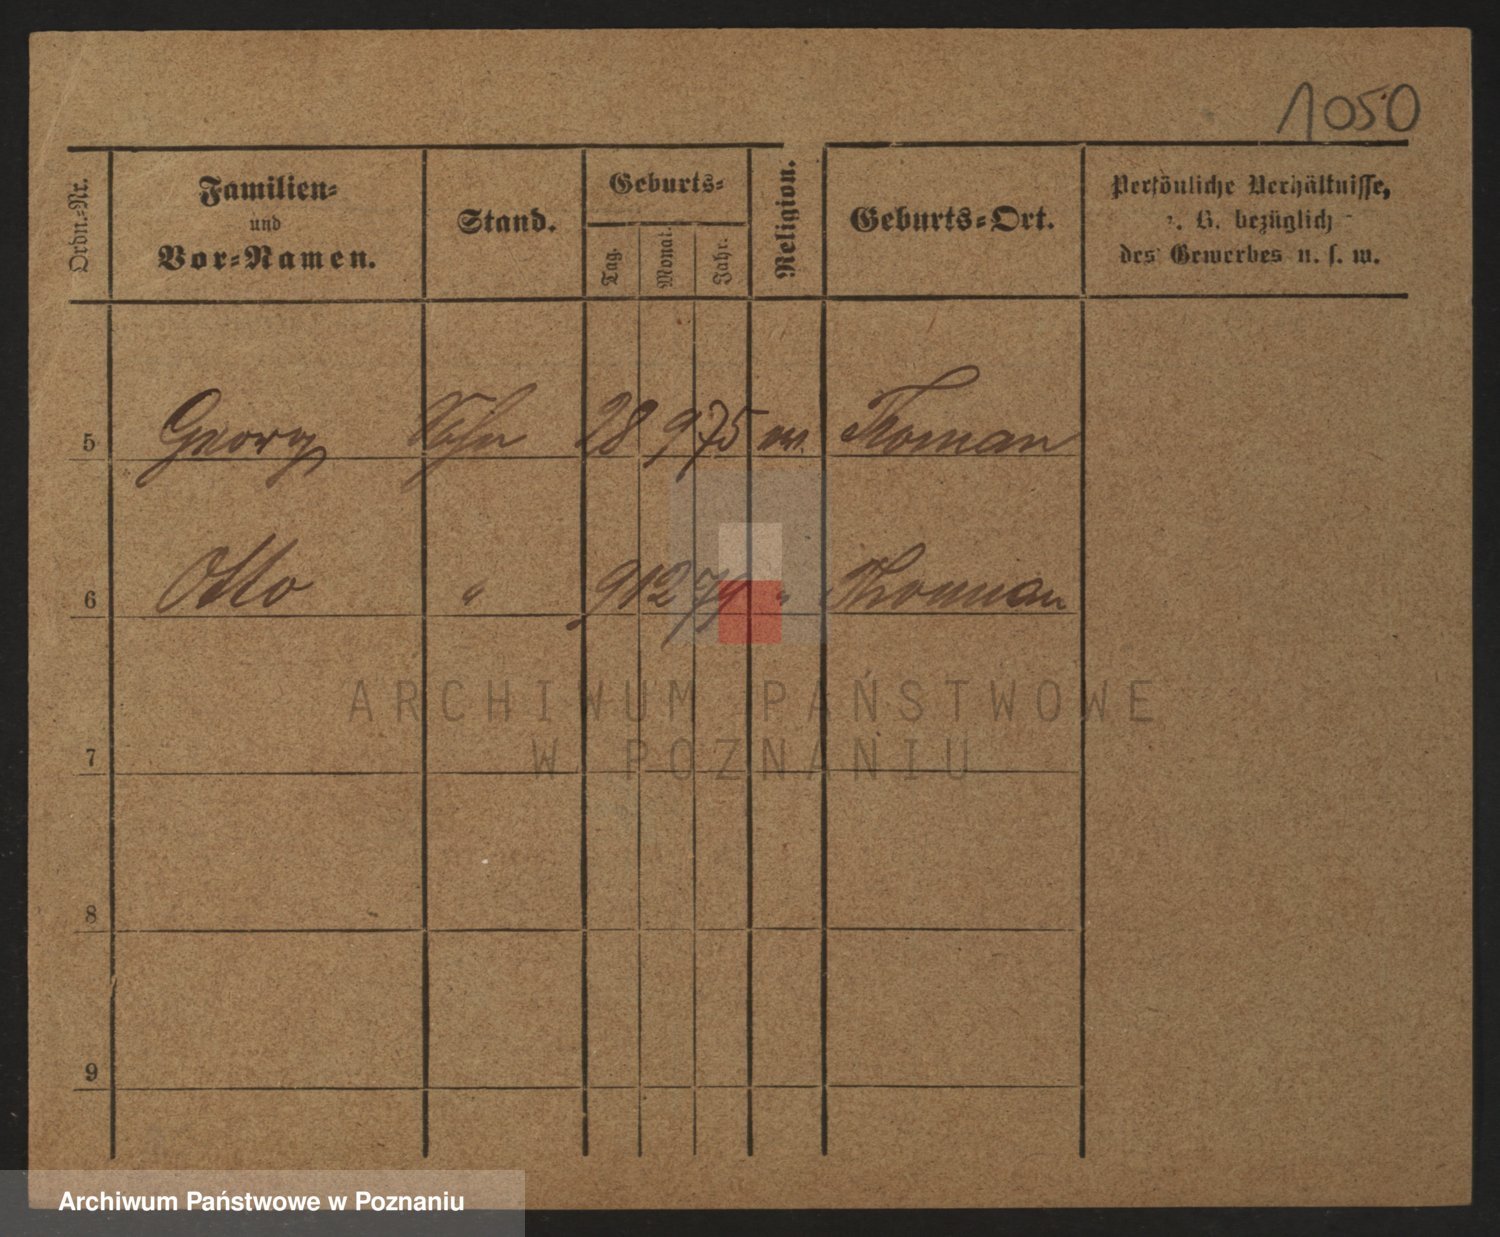 1050
Ordn.-Nr.
Familien-
und
Vor-Namen.
Stand.
Geburts-
Tag.
Monat.
Jahr.
Religion.
Geburts-Ort.
Persönliche Verhältnisse,
z. B. bezüglich
des Gewerbes u. s. w.
5 Georg Sohn 28 9 75 ev. Roman
6 Otto " 9 12 79 " Thoman
ARCHIWUM PAŃSTWOWE
W POZNANIU
7
8
9
Archiwum Państwowe w Poznaniu